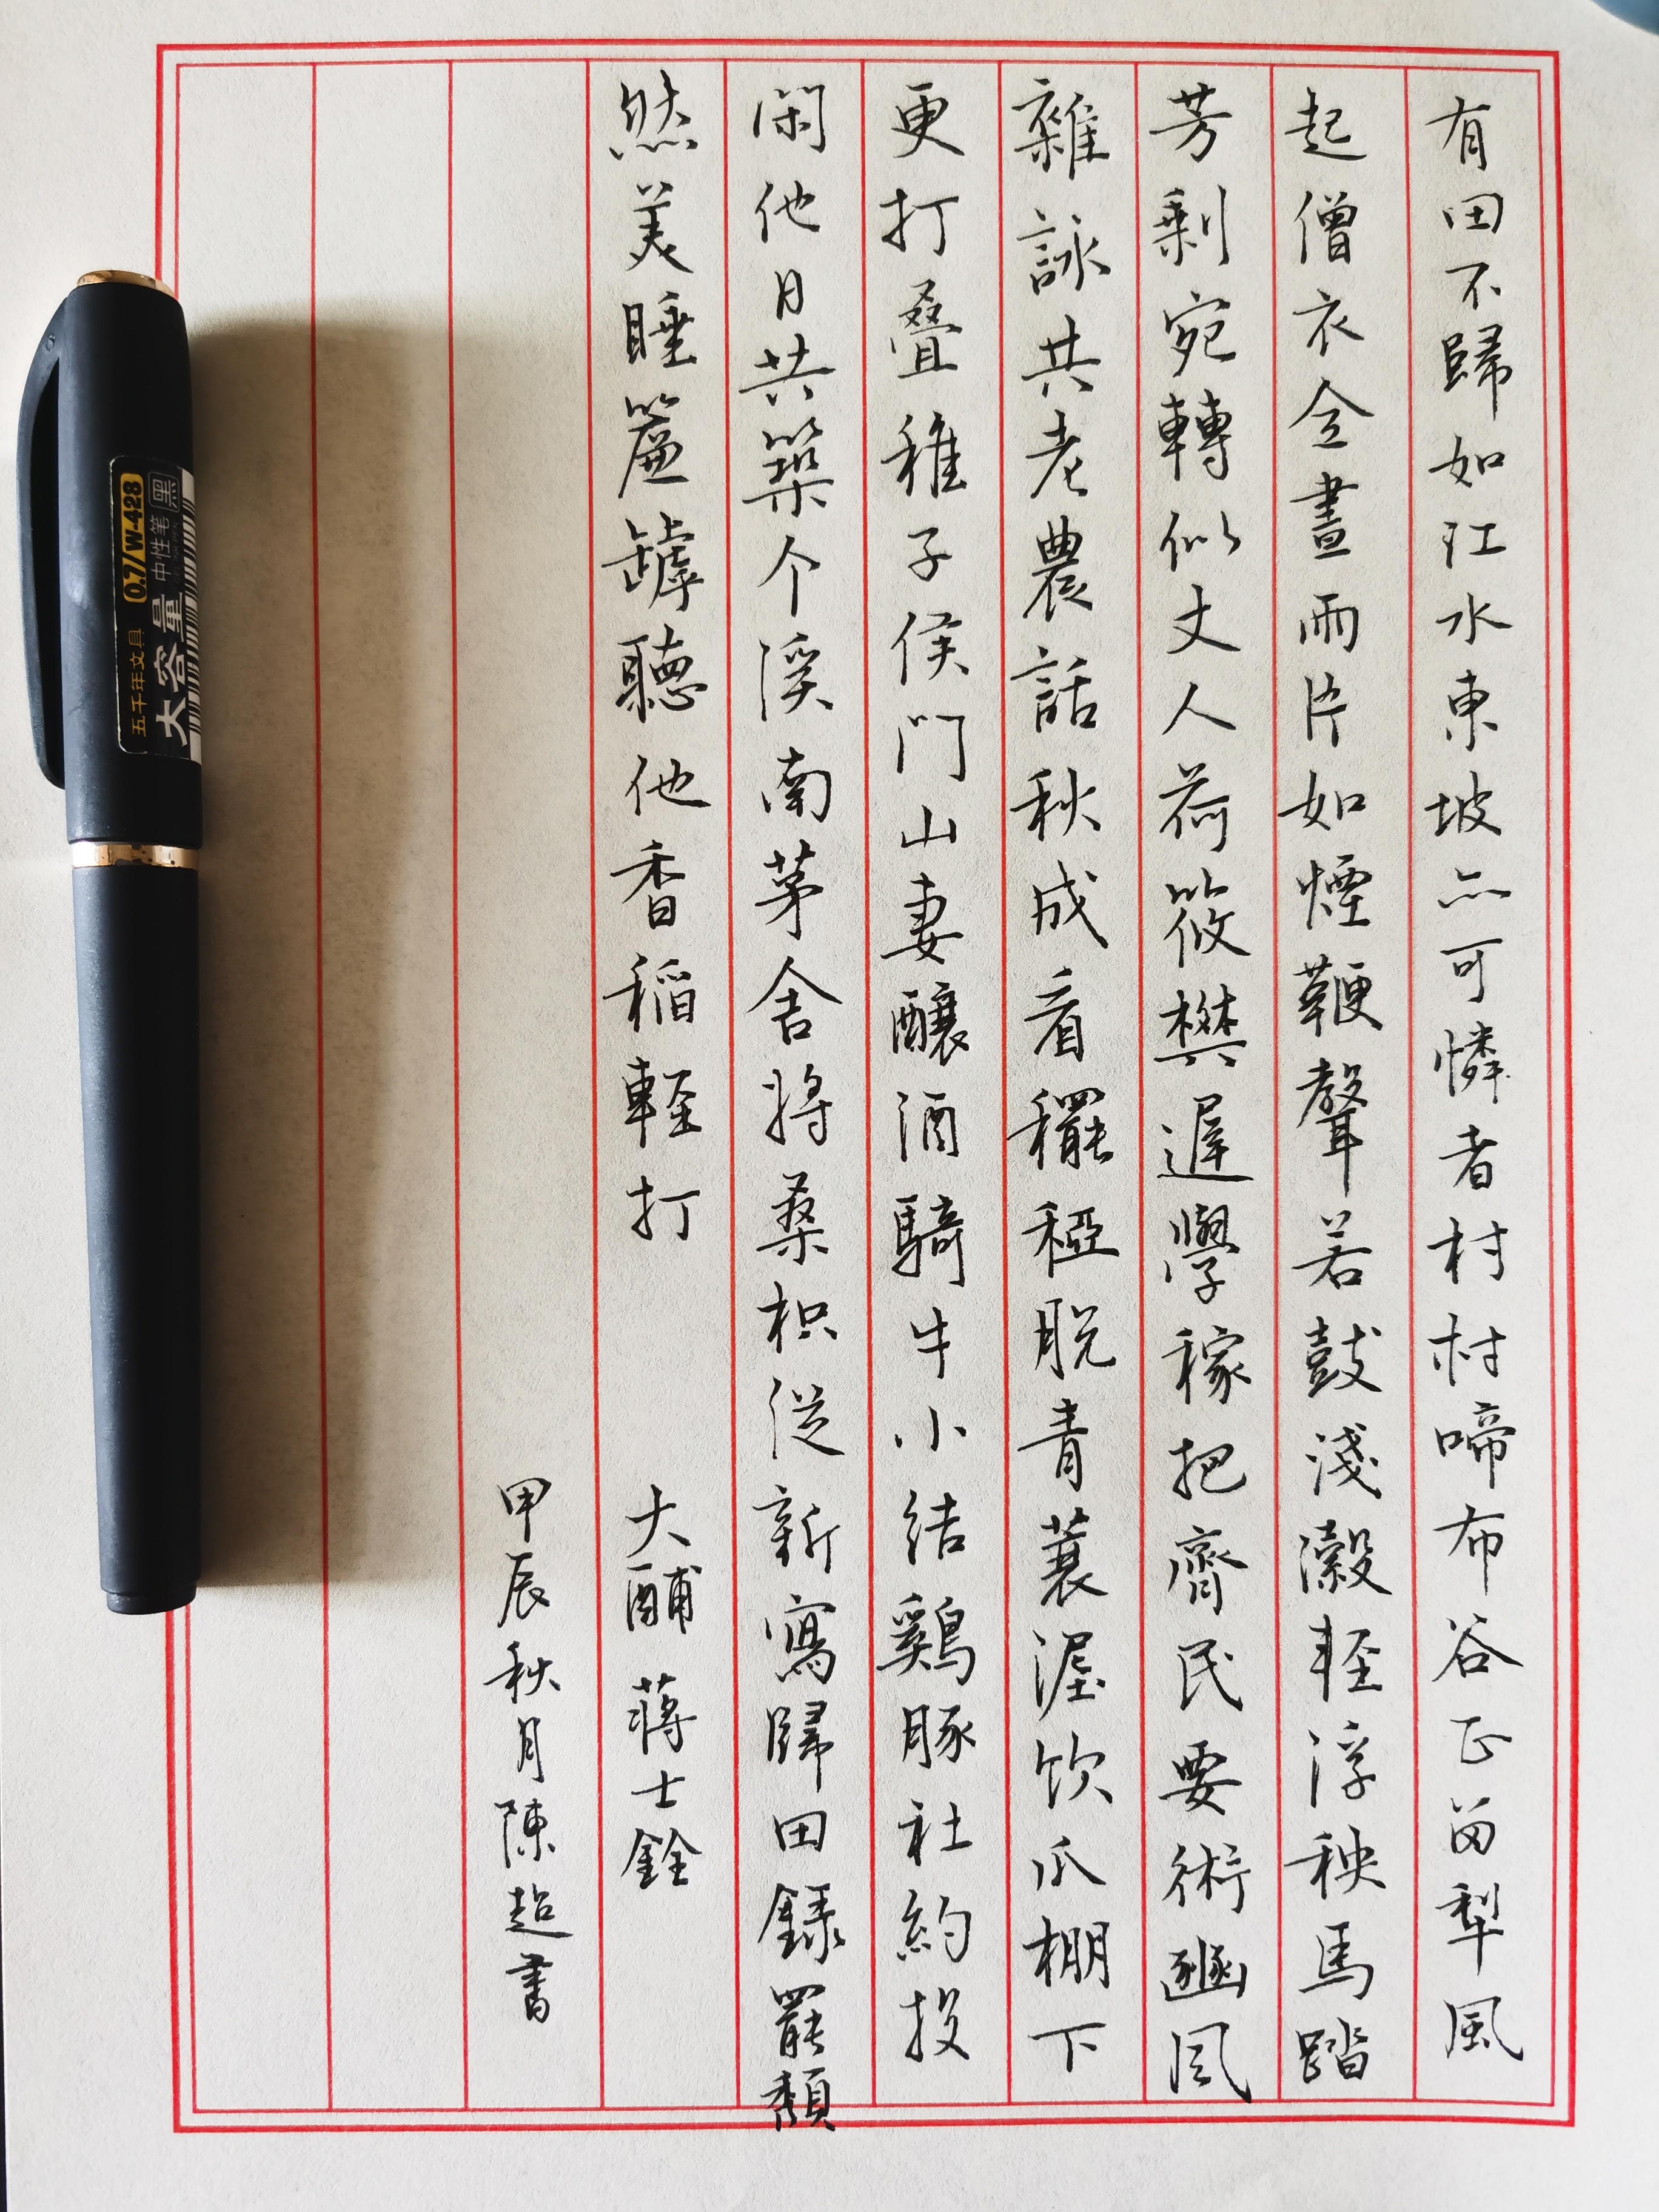 有田不歸如江水東坡亦可憐者村村啼布谷正畄犁風
起僧衣全畫雨片如煙鞭聲若鼓淺瀔輕浮秧馬踏
芳剩宛轉似丈人荷筱樊遲學稼把齊民要術豳風
雜詠共老農話秋成看䆉稏脫青蓑渥飲瓜棚下
更打叠稚子侯門山妻釀酒騎牛小結鷄豚社約投
閑他日共築个溪南茅舍將桑枳從新寫歸田錄罷頹
然美睡簾罅聽他香稻輕打 大酺 蔣士銓
甲辰秋月陳超書
五千年文具 0.7/W-428
大容量 中性笔 黑